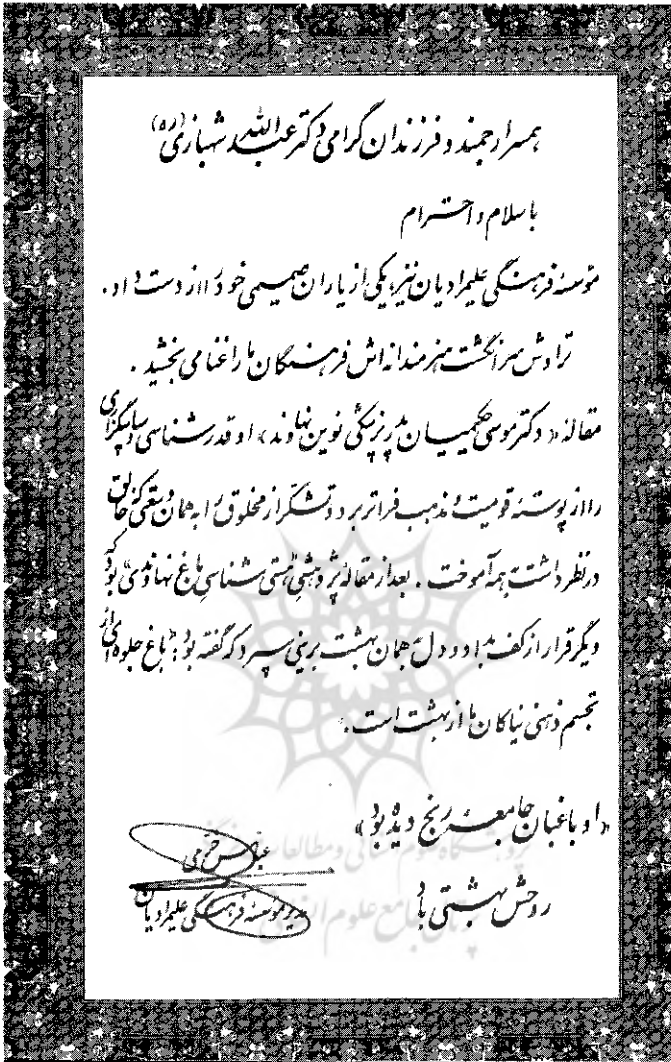 همسر ارجمند و فرزندان گرامی دکتر عبدالله شهبازی (ره)
با سلام و احترام
مؤسسهٔ فرهنگی علیمرادیان نیز، یکی از یاران صمیمی خود را از دست داد.
تراوش سرانگشت هنرمندانه‌اش فرهنگان ما را غنا می‌بخشید.
مقالهٔ «دکتر موسی حکمیان پدر پزشکی نوین نهاوند» او قدرشناسی و سپاسگزاری
را از پوستهٔ قومیت و مذهب فراتر برد و تشکر از مخلوق را به همان وسعتی که خالق
در نظر داشت به همه آموخت. بعد از مقالهٔ پژوهشی «هستی شناسی باغ نهاوندی» بود که
دیگر قرار از کف بداد و دل به همان بهشت برینی سپرد که گفته بود: «باغ جلوه‌ای از
تجسم ذهنی نیاکان ما از بهشت است.»
«او باغبان جامعهٔ رنج دیده بود»
روحش بهشتی باد
عباس
مدیر مؤسسه فرهنگی علیمرادیان
پژوهشگاه علوم انسانی و مطالعات فرهنگی
پرتال جامع علوم انسانی